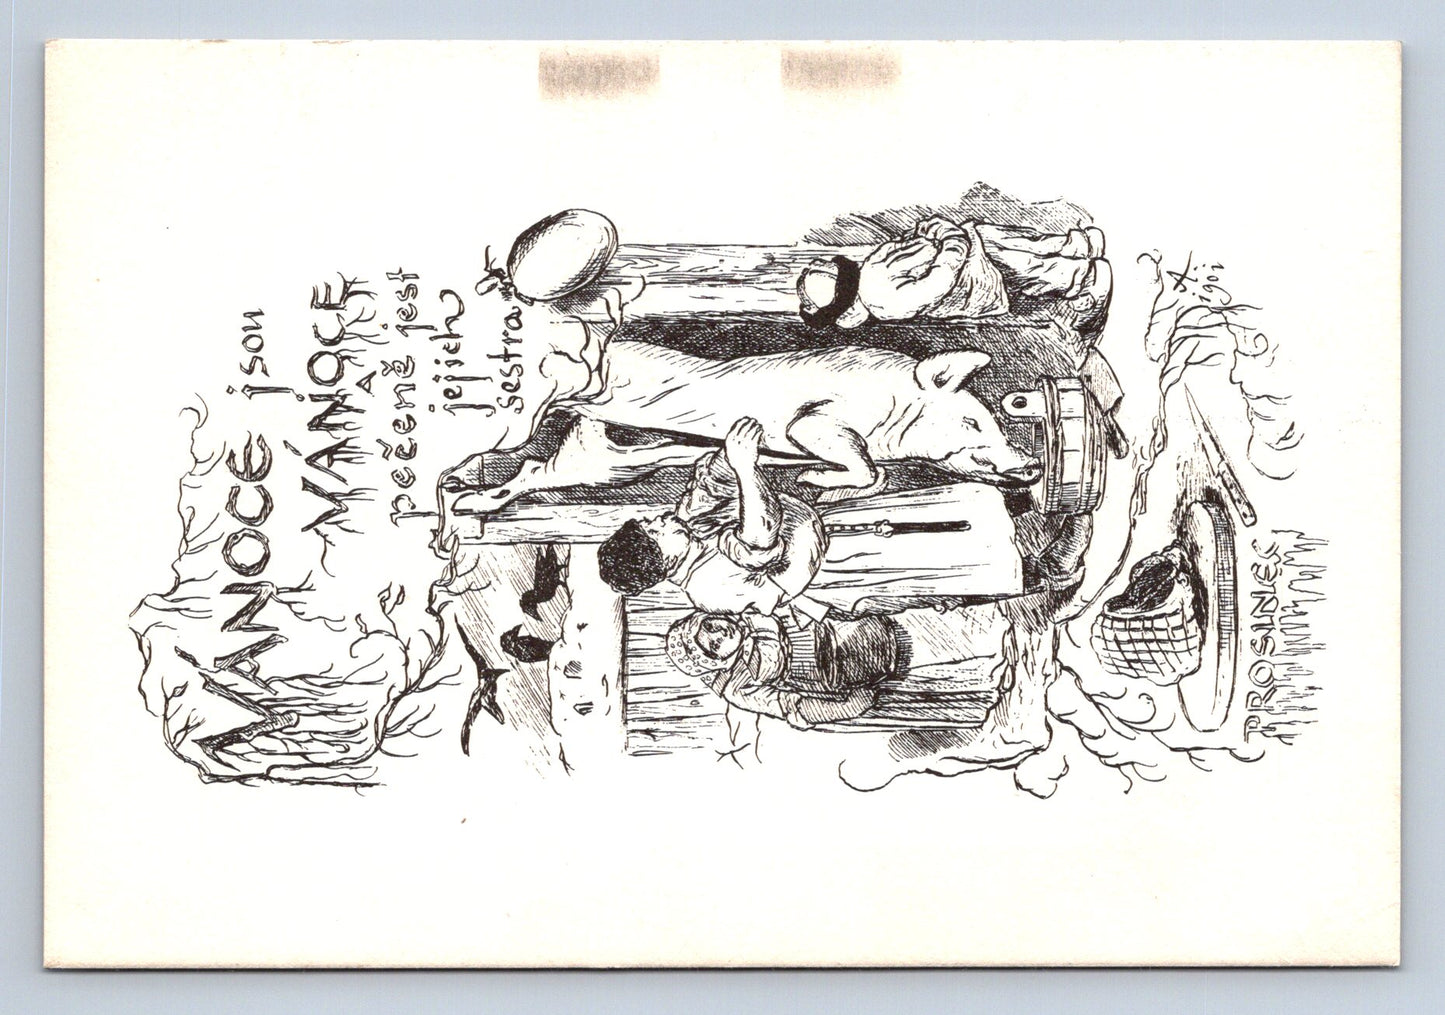 VÁNOCE jsou
VÁNOCE
A
pečeně jest
jejich
sestra
1901
PROSINEC